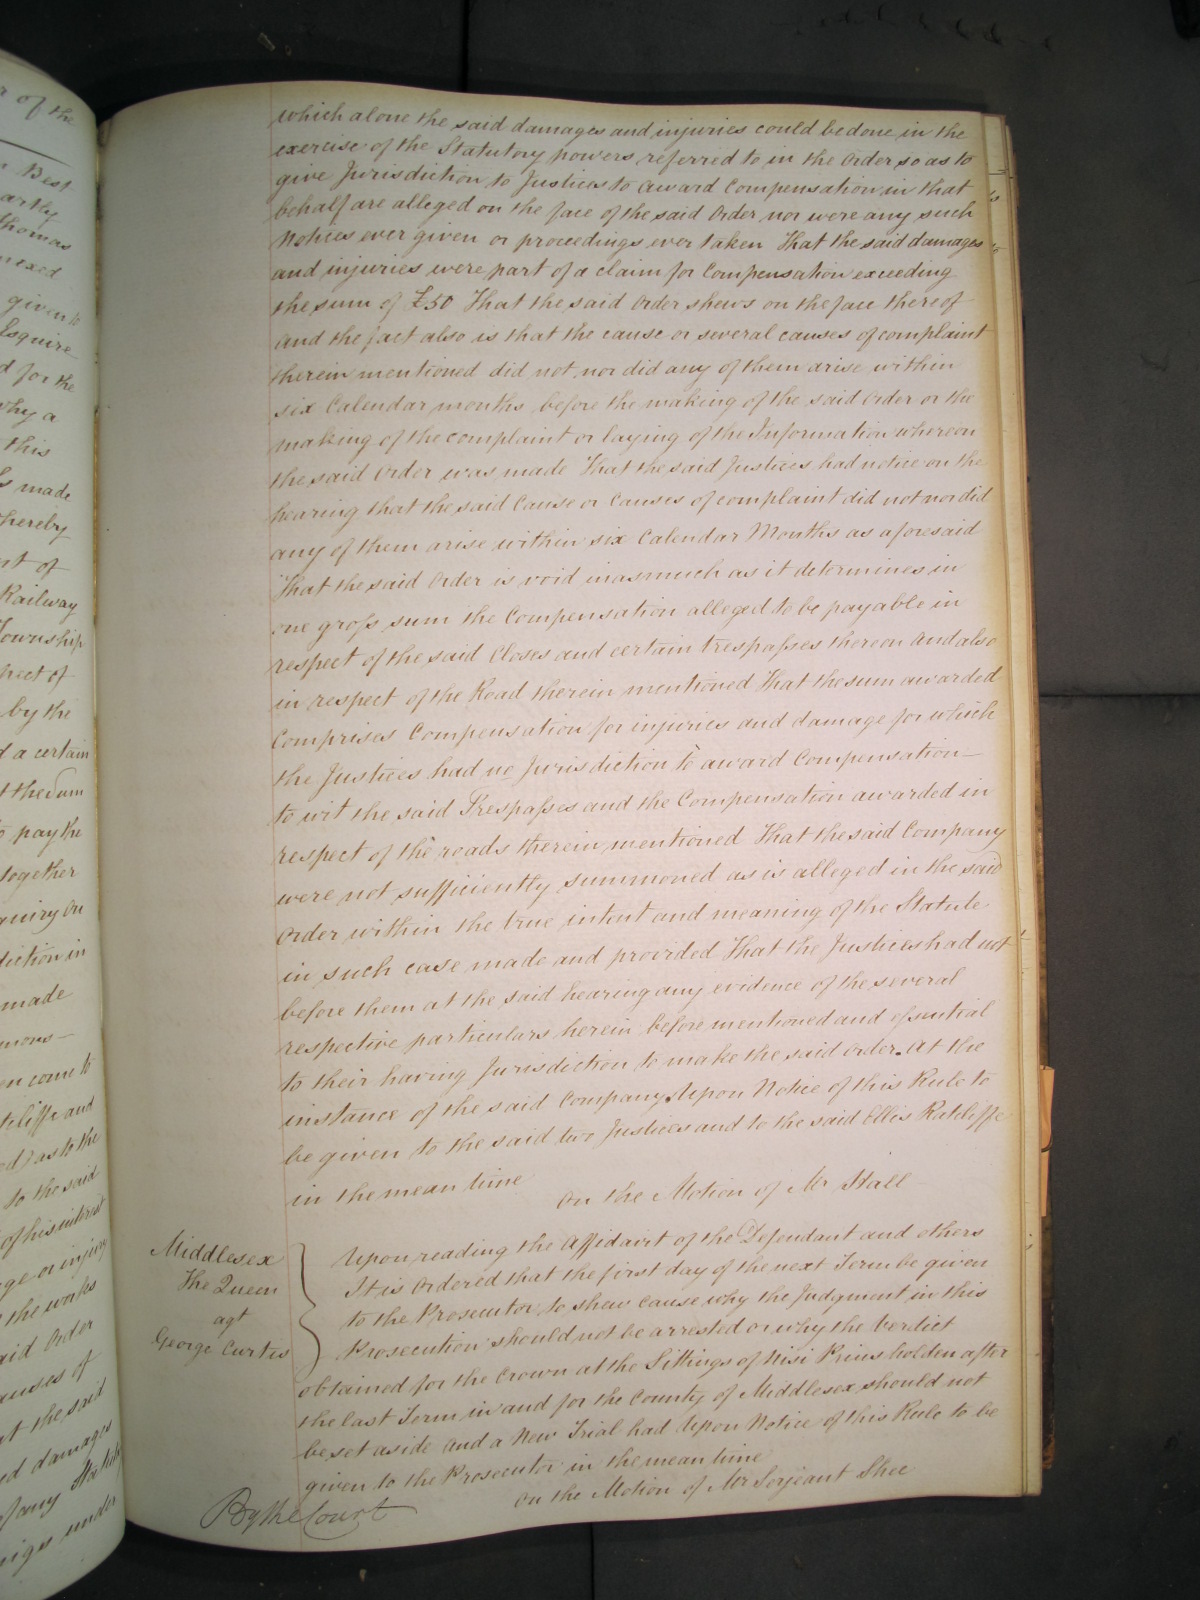 which alone the said damages and injuries could be done in the
exercise of the Statutory powers referred to in the order so as to
give Jurisdiction to Justices to award Compensation in that
behalf are alleged on the face of the said Order nor were any such
Notices ever given or proceedings ever taken That the said damages
and injuries were part of a claim for Compensation exceeding
the sum of £50 That the said Order shews on the face thereof
and the fact also is that the cause or several causes of complaint
therein mentioned did not nor did any of them arise within
six Calendar months before the making of the said Order or the
making of the complaint or laying of the Information whereon
the said Order was made That the said Justices had notice on the
hearing that the said Cause or Causes of complaint did not nor did
any of them arise within six Calendar Months as aforesaid
That the said Order is void inasmuch as it determines in
one gross sum the Compensation alleged to be payable in
respect of the said Closes and certain trespasses thereon and also
in respect of the Road therein mentioned That the sum awarded
Comprises Compensation for injuries and damage for which
the Justices had no Jurisdiction to award Compensation
to wit the said Trespasses and the Compensation awarded in
respect of the roads therein mentioned That the said Company
were not sufficiently summoned as is alleged in the said
Order within the true intent and meaning of the Statute
in such case made and provided That the Justices had not
before them at the said hearing any evidence of the several
respective particulars herein before mentioned and essential
to their having Jurisdiction to make the said Order. At the
instance of the said Company Upon Notice of this Rule to
be given to the said two Justices and to the said Ellis Ratcliffe
in the mean time
On the Motion of Mr Hall
Middlesex
The Queen
agt
George Curtis
Upon reading the Affidavit of the Defendant and others
It is Ordered that the first day of the next Term be given
to the Prosecutor to shew cause why the Judgment in this
Prosecution should not be arrested or why the Verdict
obtained for the Crown at the Sittings of Nisi Prius holden after
the last Term in and for the County of Middlesex should not
be set aside and a New Trial had Upon Notice of this Rule to be
given to the Prosecutor in the mean time
On the Motion of Mr Serjeant Shee
By the Court
r of the
Best
artly
Thomas
nexed
given to
Esquire
d for the
why a
this
made
hereby
nt of
Railway
Township
pect of
by the
d a certain
the Sum
to pay the
together
quiry on
diction in
made
mons
en come to
tcliffe and
ed) as to the
to the said
of his interest
ge or injury
the works
aid Order
auses of
at the said
ed damages
of any
under